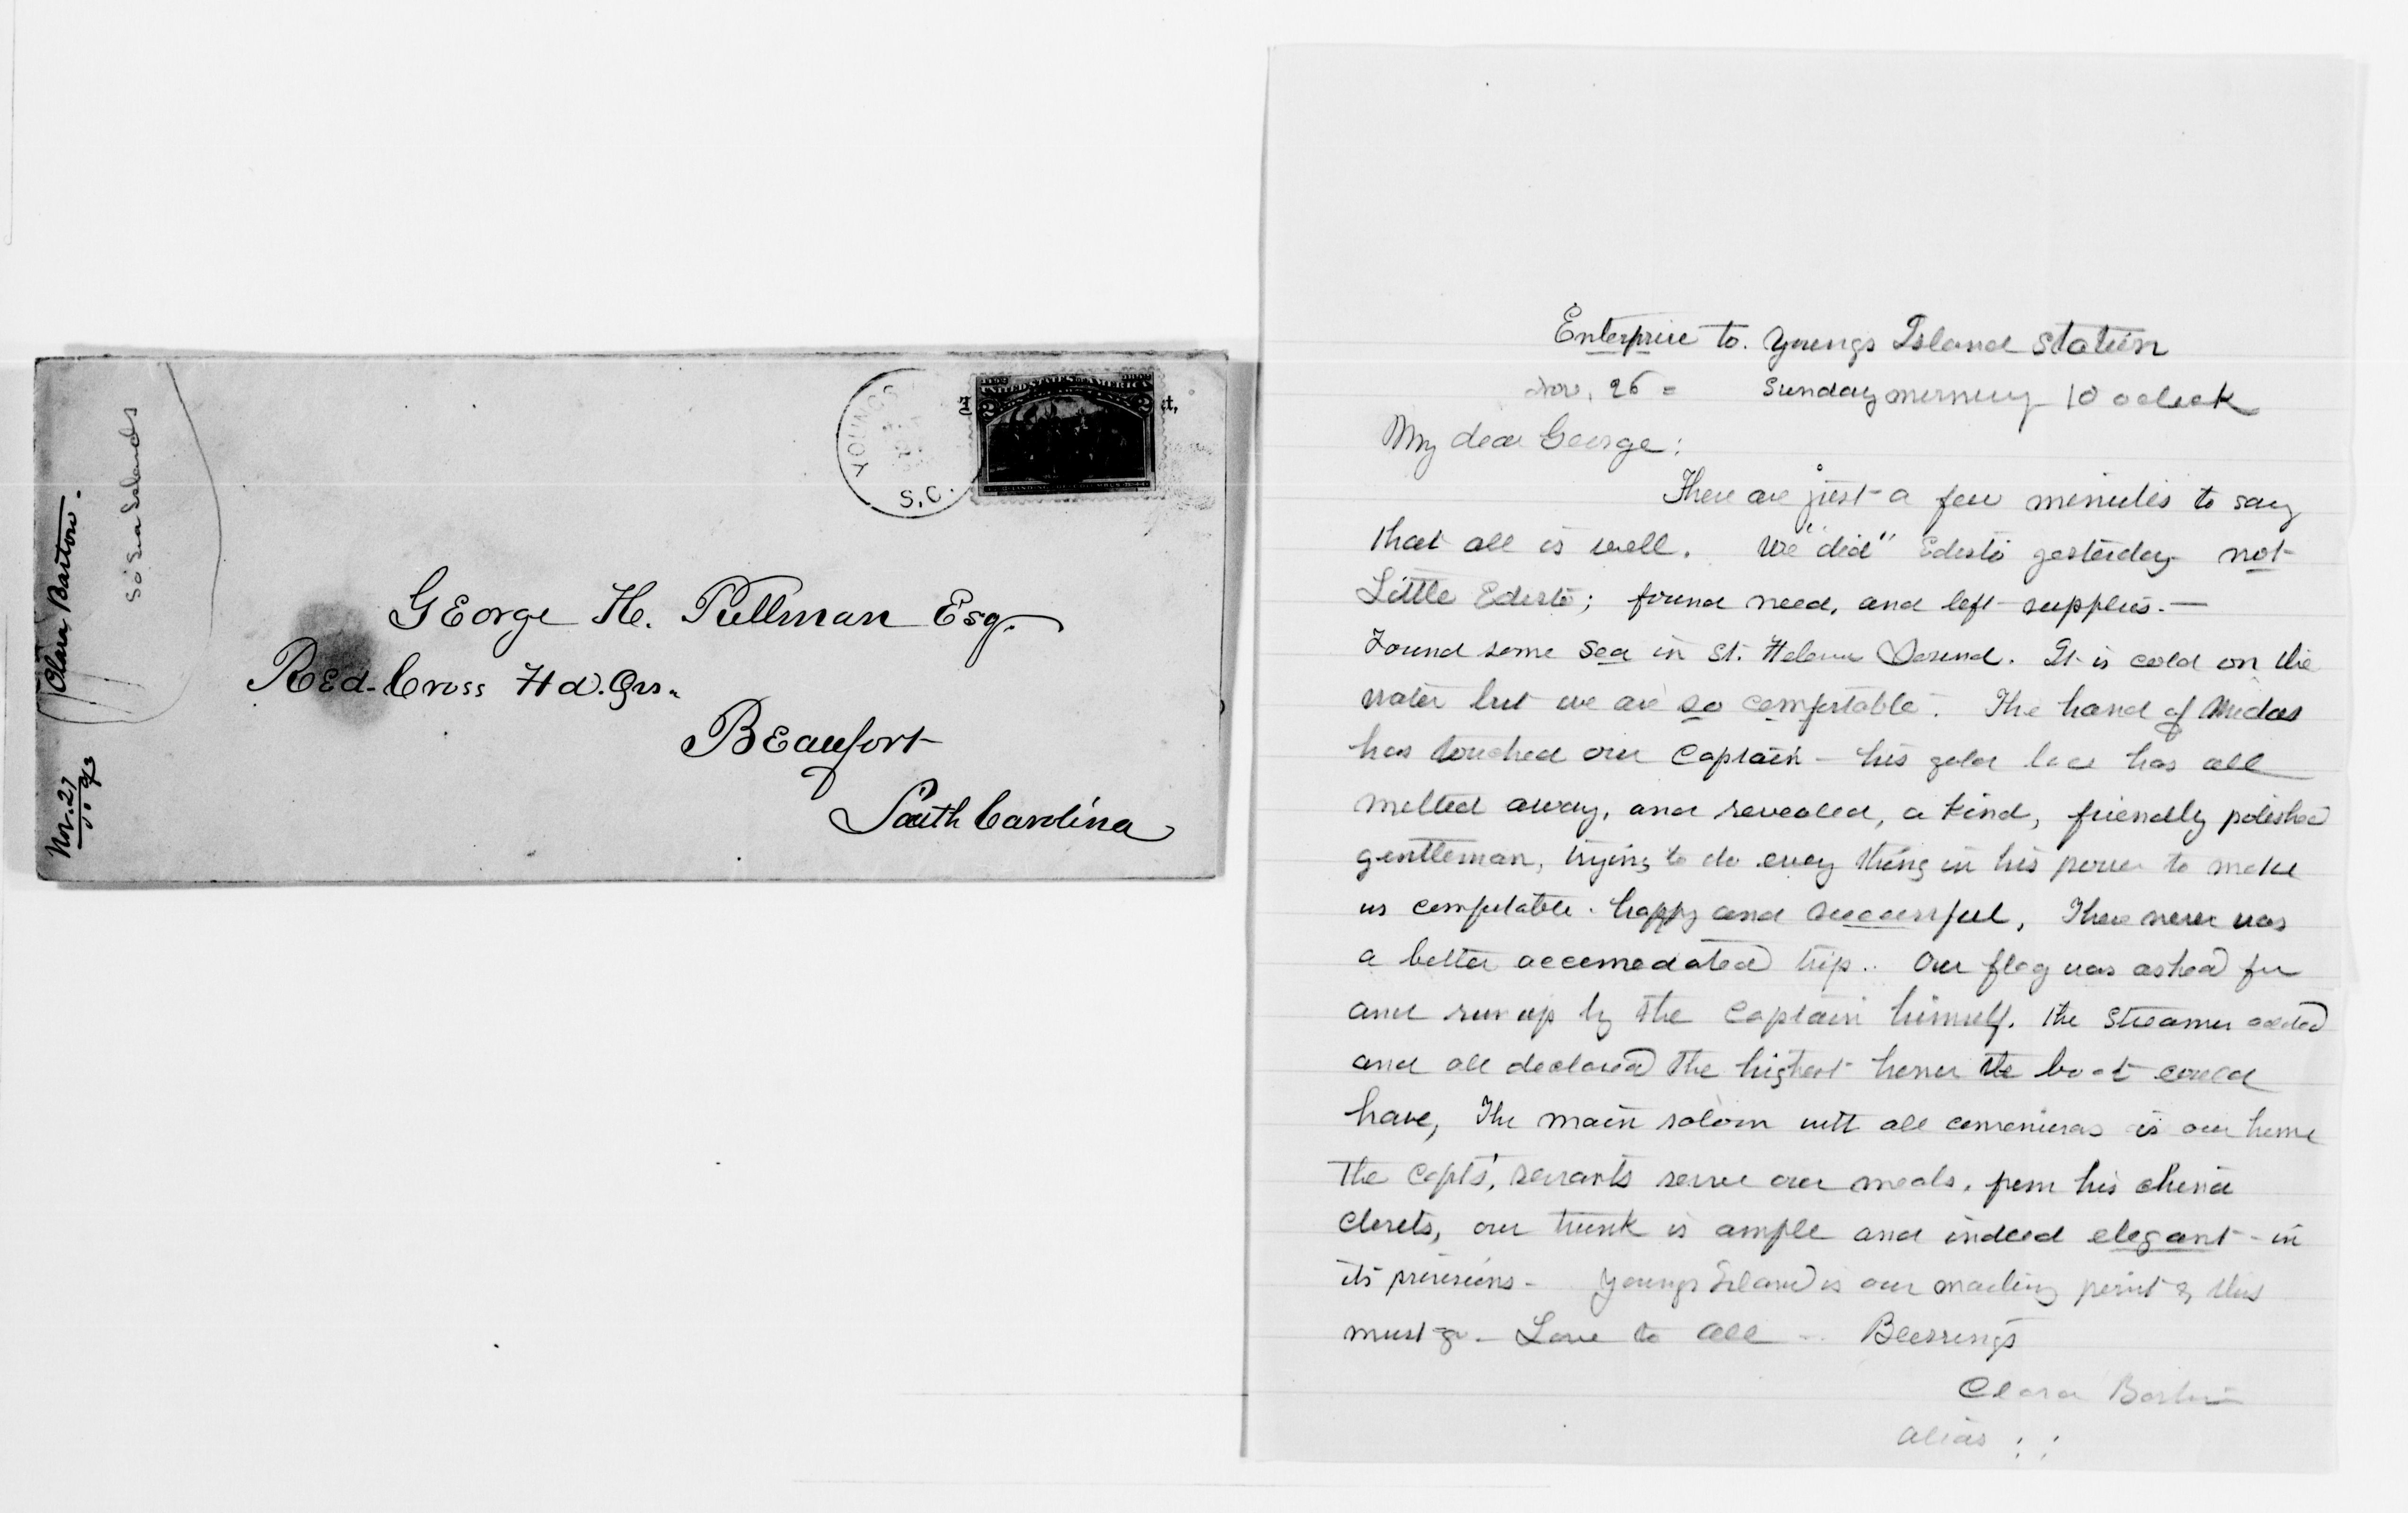 Clara Barton.
So Sea Islands
Nov. 27
'93
YOUNGS
S.C.
UNITED STATES OF AMERICA
2 2
George H. Pullman Esq.
Red-Cross Hd. Qrs.
Beaufort
South Carolina
Enterprise to. Youngs Island Station
Nov. 26 = Sunday morning 10 oclock
My dear George:
There are just a few minutes to say
that all is well. We "did" Edisto yesterday not
Little Edisto; found need, and left supplies.—
Found some sea in St. Helena Sound. It is cold on the
water but we are so comfortable. The hand of Midas
has touched our Captain – his gold lace has all
melted away, and revealed, a kind, friendly polished
gentleman, trying to do every thing in his power to make
us comfortable. happy and successful, There never was
a better accomodated trip.. Our flag was asked for
and run up by the Captain himself. the Streamer added
and all declared the highest honor the boat could
have, The main saloon with all is our home
The Capts', servants serve our meals. from his china
closets, our trunk is ample and indeed elegant - in
its provisions - Youngs Island is our mailing point & this
must go - Love to all - Blessings
Clara Barton
alias : :